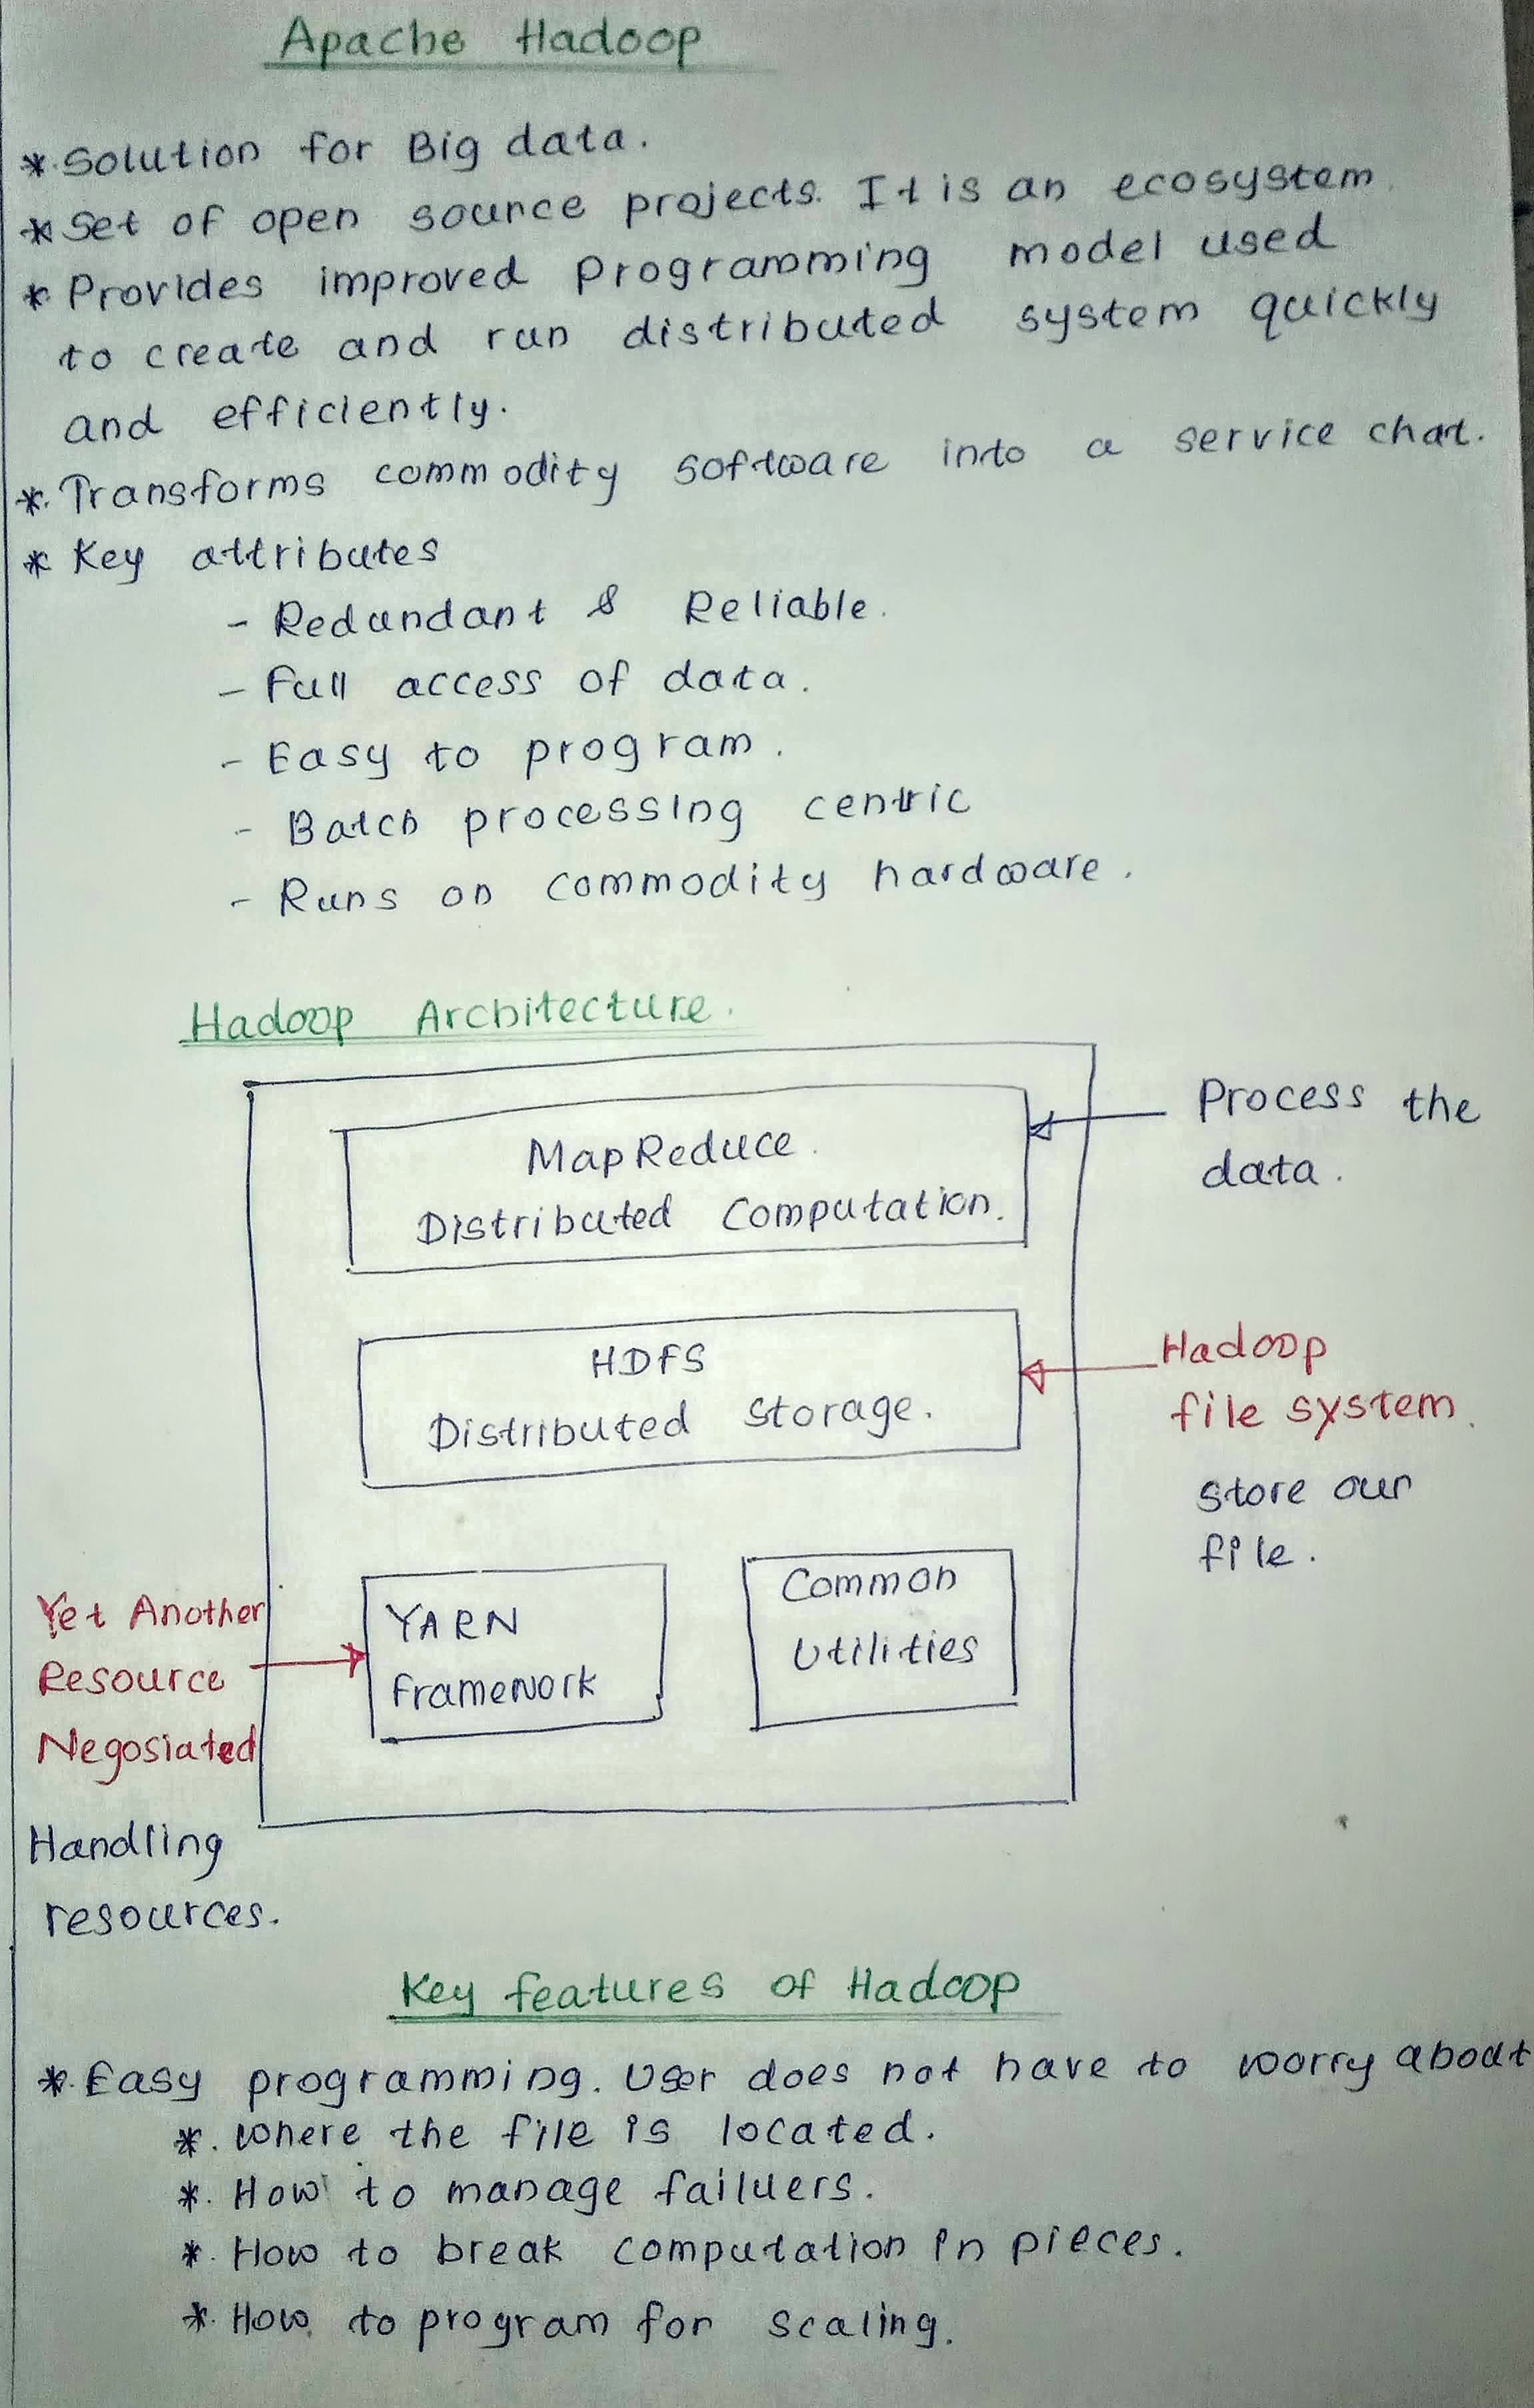 Apache Hadoop
* Solution for Big data.
* Set of open source projects. It is an ecosystem.
* Provides improved programming model used
to create and run distributed system quickly
and efficiently.
* Transforms commodity software into a service that.
* Key attributes
- Redundant & Reliable.
- Full access of data.
- Easy to program.
- Batch processing centric
- Runs on commodity hardware.
Hadoop Architecture.
MapReduce
Distributed Computation.
Process the
data.
HDFS
Distributed Storage.
Hadoop
file system.
store our
file.
Yet Another
Resource
Negosiated
Handling
resources.
YARN
Framework
Common
Utilities
Key features of Hadoop
* Easy programming. User does not have to worry about
*. Where the file is located.
*. How to manage failuers.
*. How to break computation in pieces.
*. How to program for scaling.